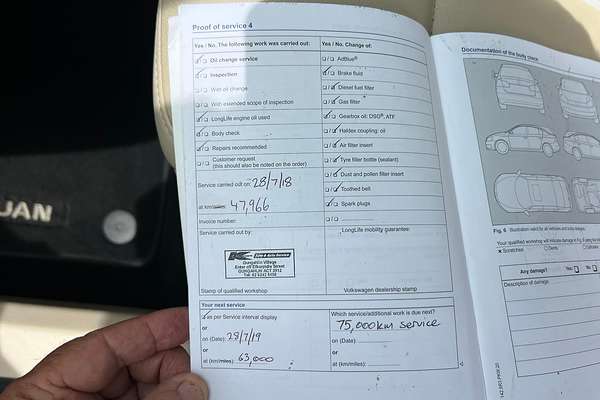 Proof of service 4
Yes / No. The following work was carried out:
Oil change service
Inspection
Wet oil change
With extended scope of inspection
LongLife engine oil used
Body check
Repairs recommended
Customer request
(this should also be noted on the order)
Service carried out on: 28/7/18
at km/miles: 47,966
Invoice number:
Service carried out by:
Gungahlin Village
GUNGAHLIN ACT 2912
Stamp of qualified workshop
Yes / No. Change of:
AdBlue®
Brake fluid
Diesel fuel filter
Gas filter
Gearbox oil: DSG®, ATF
Haldex coupling: oil
Air filter insert
Tyre filler bottle (sealant)
Dust and pollen filter insert
Toothed belt
Spark plugs
LongLife mobility guarantee:
Volkswagen dealership stamp
Your next service
as per Service interval display
or
on (Date): 28/7/19
or
at (km/miles): 63,000
Which service/additional work is due next?
75,000km service
on (Date)
or
at (km/miles):
Documentation of the body check
Fig. 6 Illustration valid for all vehicles and body designs.
Your qualified workshop will indicate damage in
Scratches
Dents
Any damage? Yes No
Description of damage:
UAN